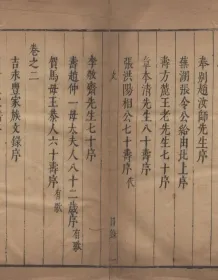 奉别趙汝師先生序
蕪湖張令公給由北上序
壽方麓王老先生七十序
章本清先生八十壽序
張洪陽相公七十壽序 代
李敬齋先生七十序
壽趙仲一母太夫人八十二歲序 有歌
賀馬母王恭人六十壽序 有歌
卷之二
吉永豐家族文錄序